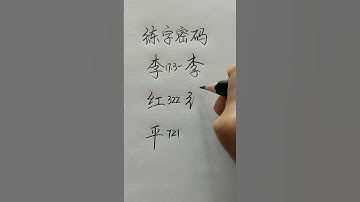 练字密码
李173-李
红322
平721